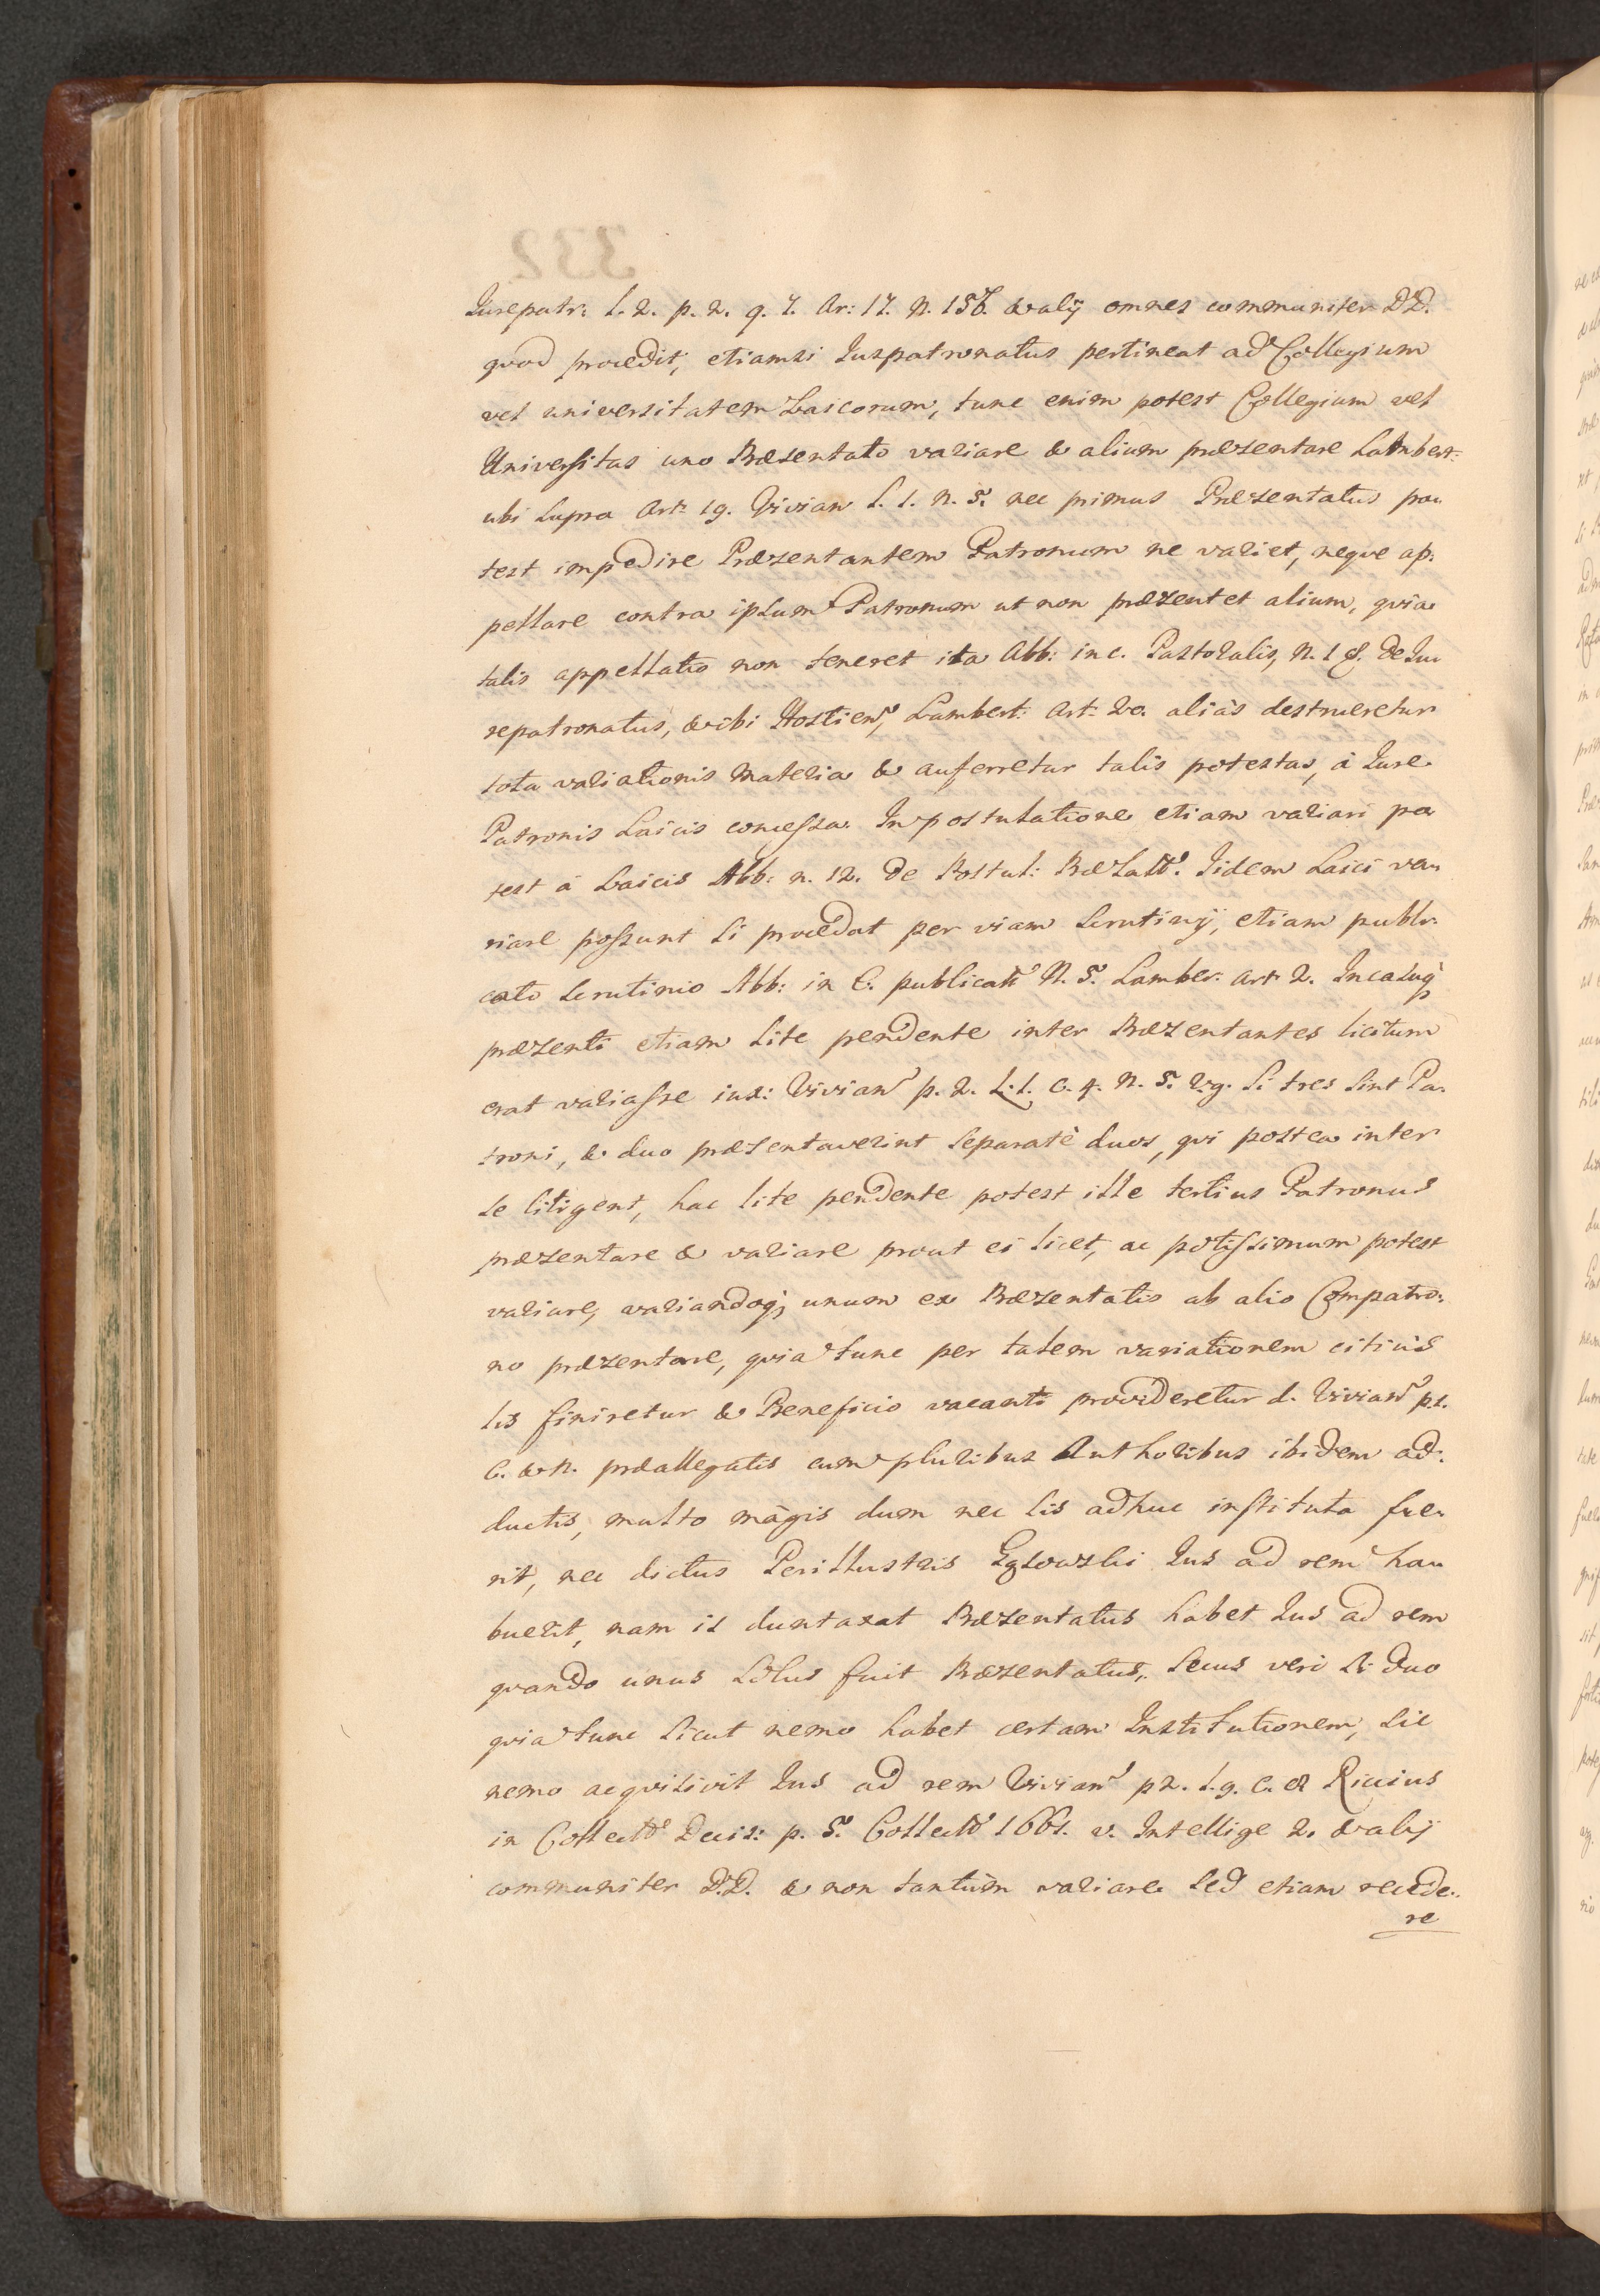 Jurepatr: l. 2. p. 2. q. 7. Ar: 17. N. 156. & alij omnes communiter DD.
quod procedit, etiamsi Juspatronatus pertineat ad Collegium
vel universitatem Laicorum, tunc enim potest Collegium vel
Universitas uno Præsentato variare & alium præzentare Lambert:
ubi supra Art: 19. Vivian l. 1. N. 5. nec primus Præzentatus po-
test impedire Præzentantem Patronum ne variet, neque ap:
pellare contra ipsum Patronum ut non præzentet alium, quia
talis appellatio non teneret ita Abb: in c. Pastoralis, N. 18. de Ju-
repatronatus, & ibi Hostien, Lambert: Art: 20. aliàs destrueretur
tota variationis materia & auferretur talis potestas, à Jure
Patronis Laicis concessa. In postulatione etiam variari po-
test à Laicis Abb: n. 12. de Postul: Prælat. Iidem Laici va-
riare possunt si procedat per viam scrutinij, etiam publi-
cato scrutinio Abb: in C. publicati N. 5. Lamber: Art: 2. In casuq
præzenti etiam lite pendente inter Præzentantes licitum
erat variasse iux: Vivian p. 2. L. 1. C. 4. N. 5. v.g. si tres sint Pa-
troni, & duo præsentaverint separatè duos, qui postea inter
se litigent, hac lite pendente potest ille tertius Patronus
præzentare & variare prout ei licet, ac potissimum potest
variare, variandoq; unum ex Præzentatis ab alio Compatro:
no præzentare, quia tunc per talem variationem citiùs
lis finiretur & Beneficio vacanti provideretur d. Vivian p. 2.
C. & N. præallegatis cum pluribus Authoribus ibidem ad:
ductis, multo màgis dum nec lis adhuc instituta fue-
rit, nec dictus Perillustris Ius ad rem ha-
buerit, nam is duntaxat Præzentatus habet Ius ad rem
quando unus solus fuit Præzentatus, secus verò si duo
quia tunc sicut nemo habet certam Institutionem, sic
nemo acquisivit Ius ad rem Vivian p 2. l. 9. C. Riccius
in Collect Decis: p. 5. Collect 1661. v. Intellige 2. & alij
communiter DD. & non tantùm variare sed etiam recede:
re